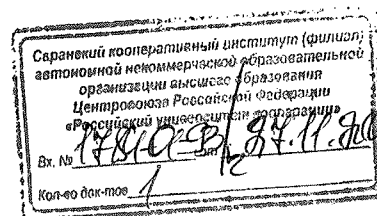 Саранский кооперативный институт (филиал)
автономной некоммерческой образовательной
организации высшего образования
Центросоюза Российской Федерации
«Российский университет кооперации»
Вх. № от 27.11.
Кол-во док-тов 1